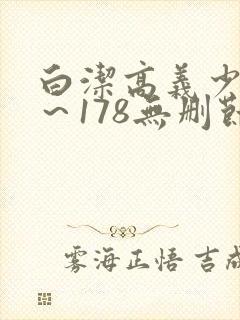 白潔高義少
~178無刪節
雾海正悟 吉成